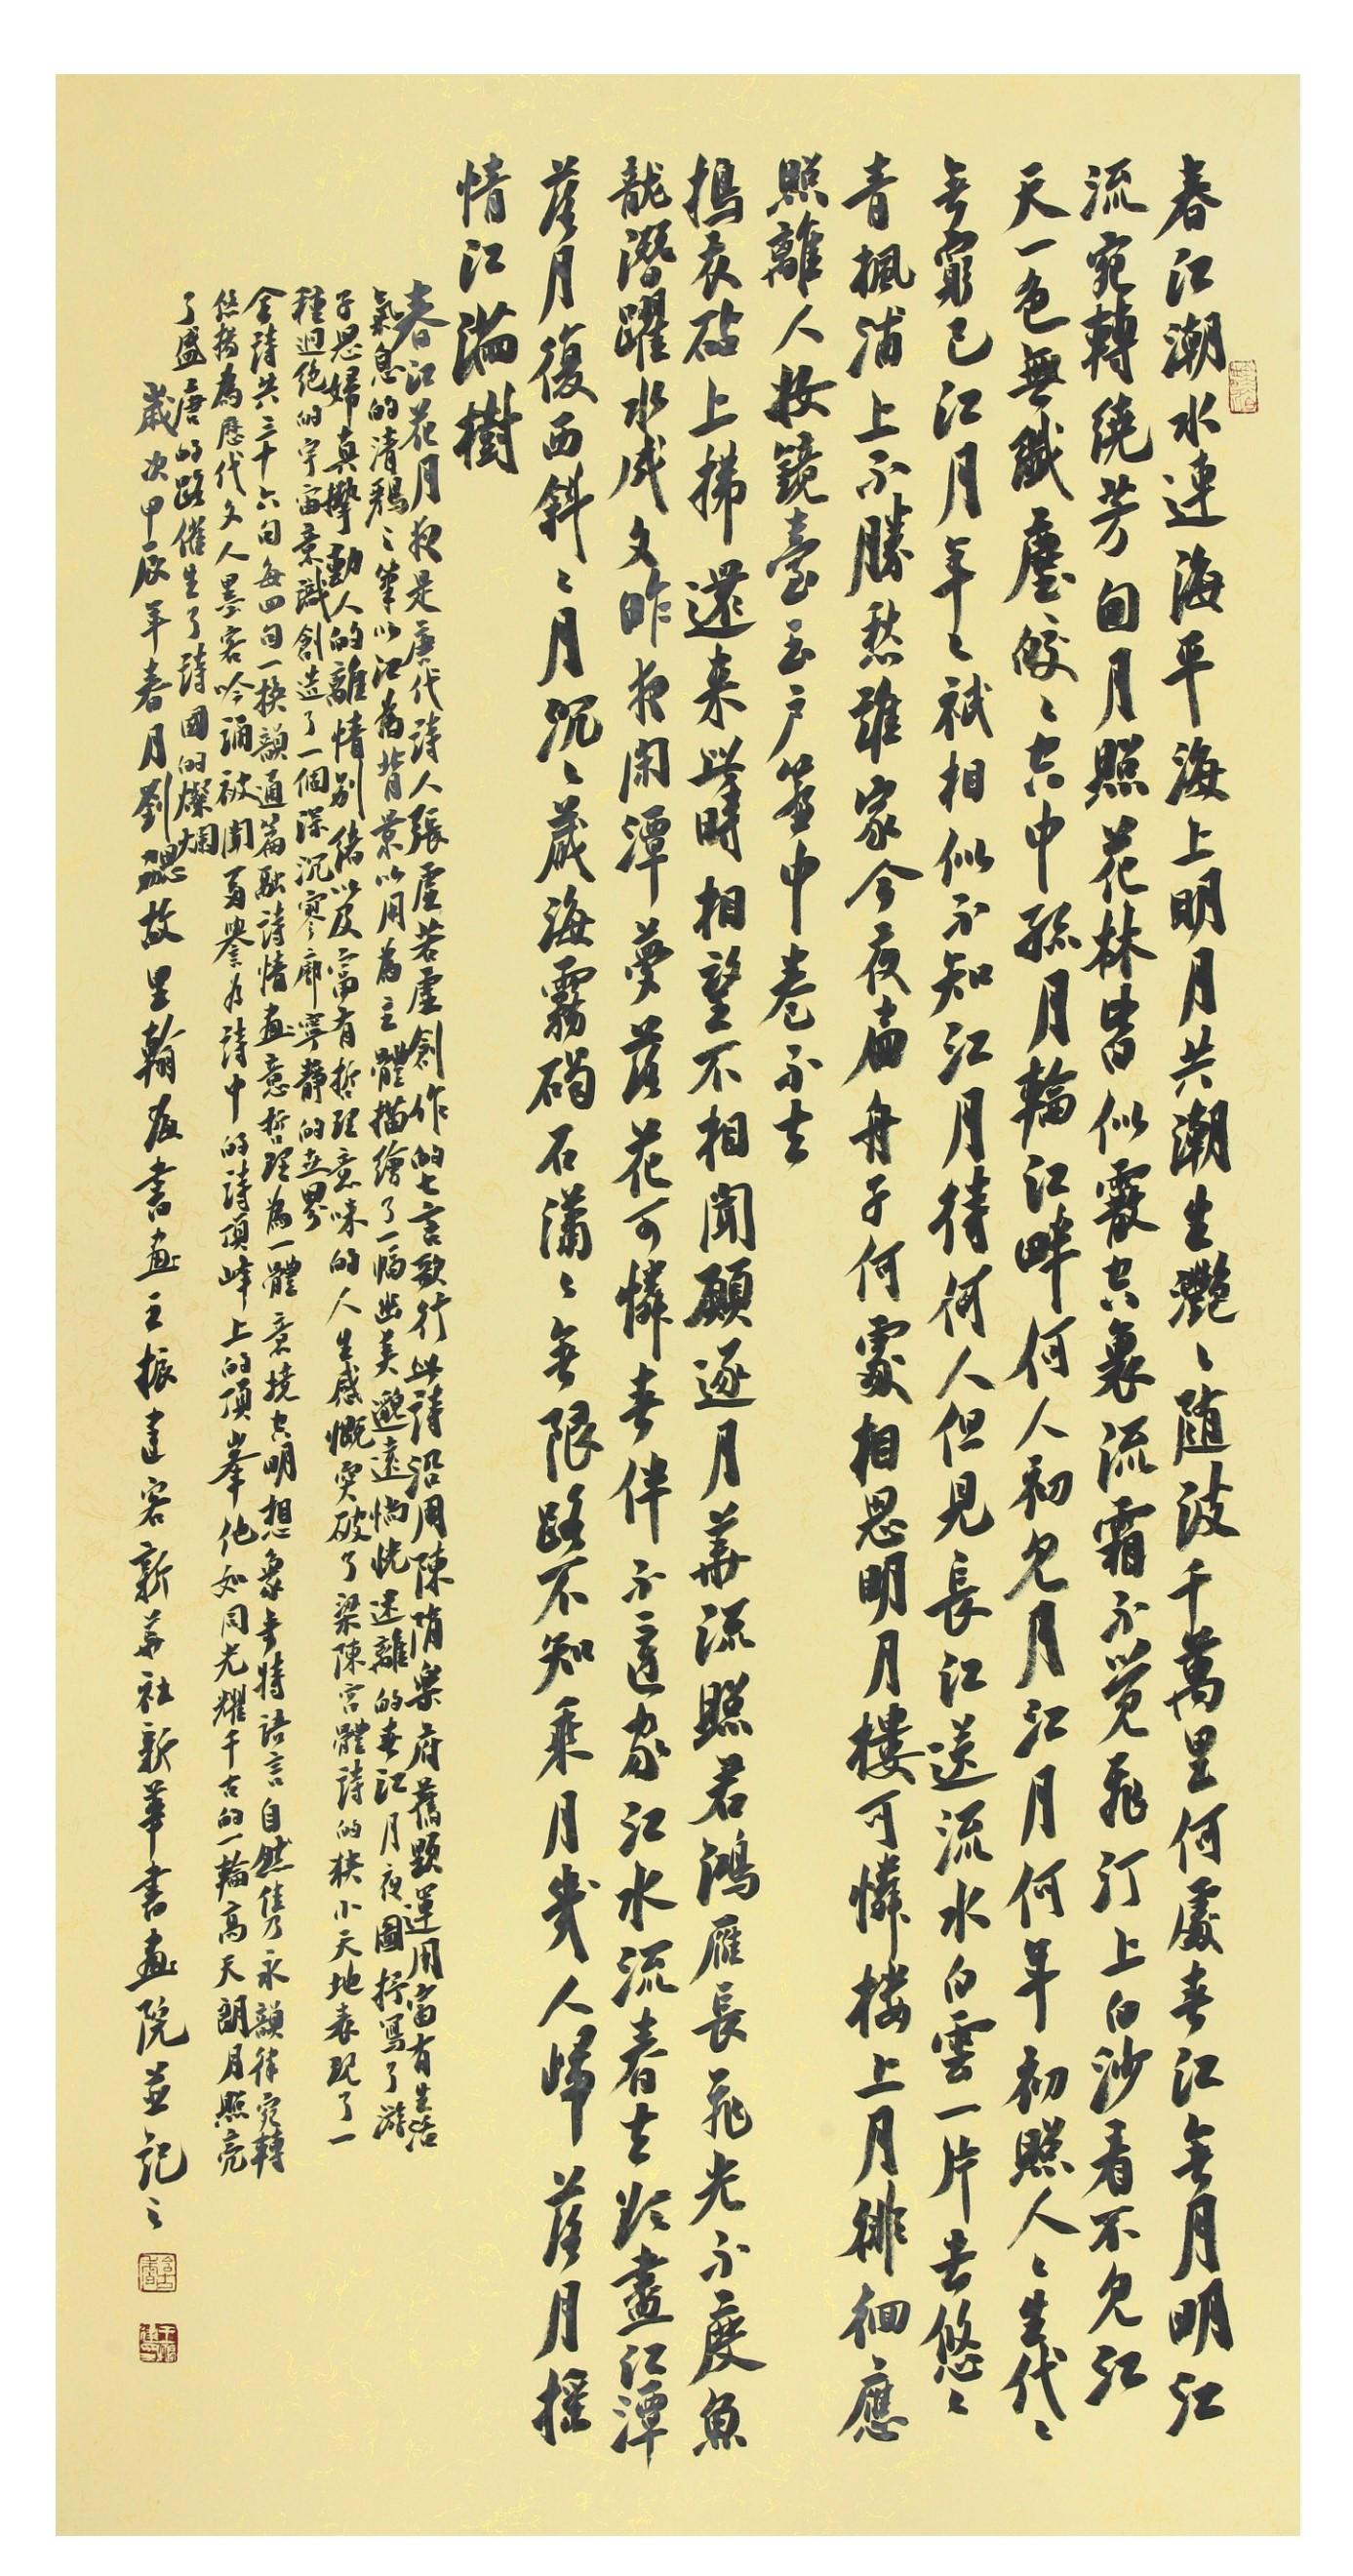 春江潮水連海平海上明月共潮生灧〻隨波千萬里何處春江無月明江
流宛轉繞芳甸月照花林皆似霰空裏流霜不覺飛汀上白沙看不見江
天一色無纖塵皎〻空中孤月輪江畔何人初見月江月何年初照人〻生代〻
無窮已江月年〻祇相似不知江月待何人但見長江送流水白雲一片去悠〻
青楓浦上不勝愁誰家今夜扁舟子何處相思明月樓可憐樓上月徘徊應
照離人妝鏡臺玉戶簾中卷不去
搗衣砧上拂還來此時相望不相聞願逐月華流照君鴻雁長飛光不度魚
龍潛躍水成文昨夜閑潭夢落花可憐春伴不還家江水流春去欲盡江潭
落月復西斜〻月沉〻藏海霧碣石瀟〻無限路不知乘月幾人歸落月搖
情江滿樹
春江花月夜是唐代詩人張虛若虛創作的七言歌行此詩沿用陳隋樂府舊題運用富有生活
氣息的清麗之筆以江為背景以月為主體描繪了一幅幽美邈遠惝恍迷離的春江月夜圖抒寫了游
子思婦真摯動人的離情別緒以及富有哲理意味的人生感慨突破了梁陳宮體詩的狹小天地表現了一
種迥絕的宇宙意識創造了一個深沉寥廓寧靜的世界
全詩共三十六句每四句一換韻通篇融詩情畫意哲理為一體意境空明想象奇特語言自然雋永韻律宛轉
悠揚為歷代文人墨客吟誦被聞譽為詩中的詩頂峰上的頂峯他如同光耀千古的一輪高天朗月照亮
了盛唐的路催生了詩國的燦爛
歲次甲辰年春月劉勰故里翰海書畫王振達客新華社新華書畫院並記之